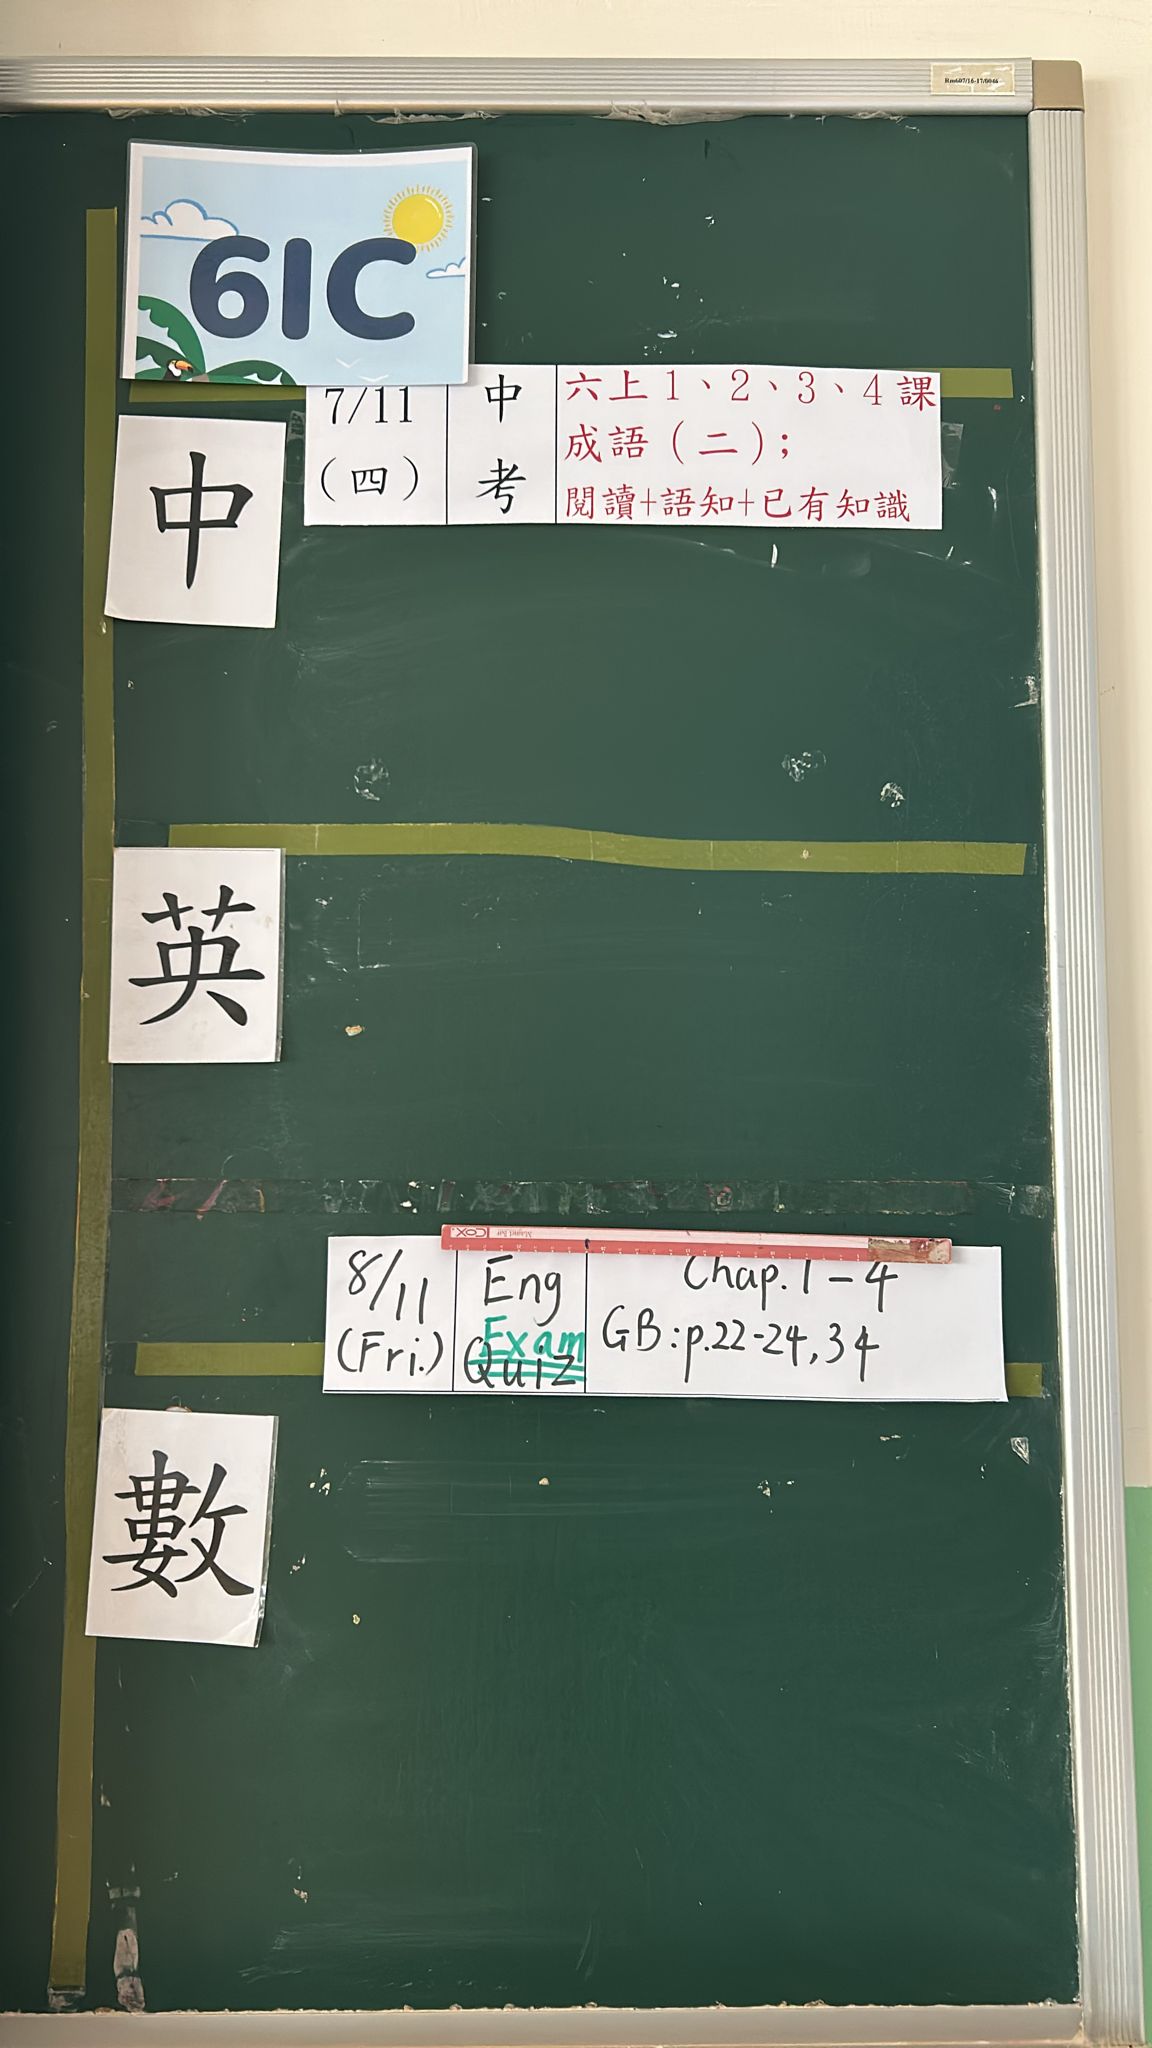 Rm607/16-17/0046
6IC
7/11
(四)
中
考
六上1、2、3、4課
成語(二);
閱讀+語知+已有知識
中
英
Magnet Bar COX
8/11
(Fri.)
Eng
Exam
Quiz
Chap. 1-4
GB: p.22-24, 34
數